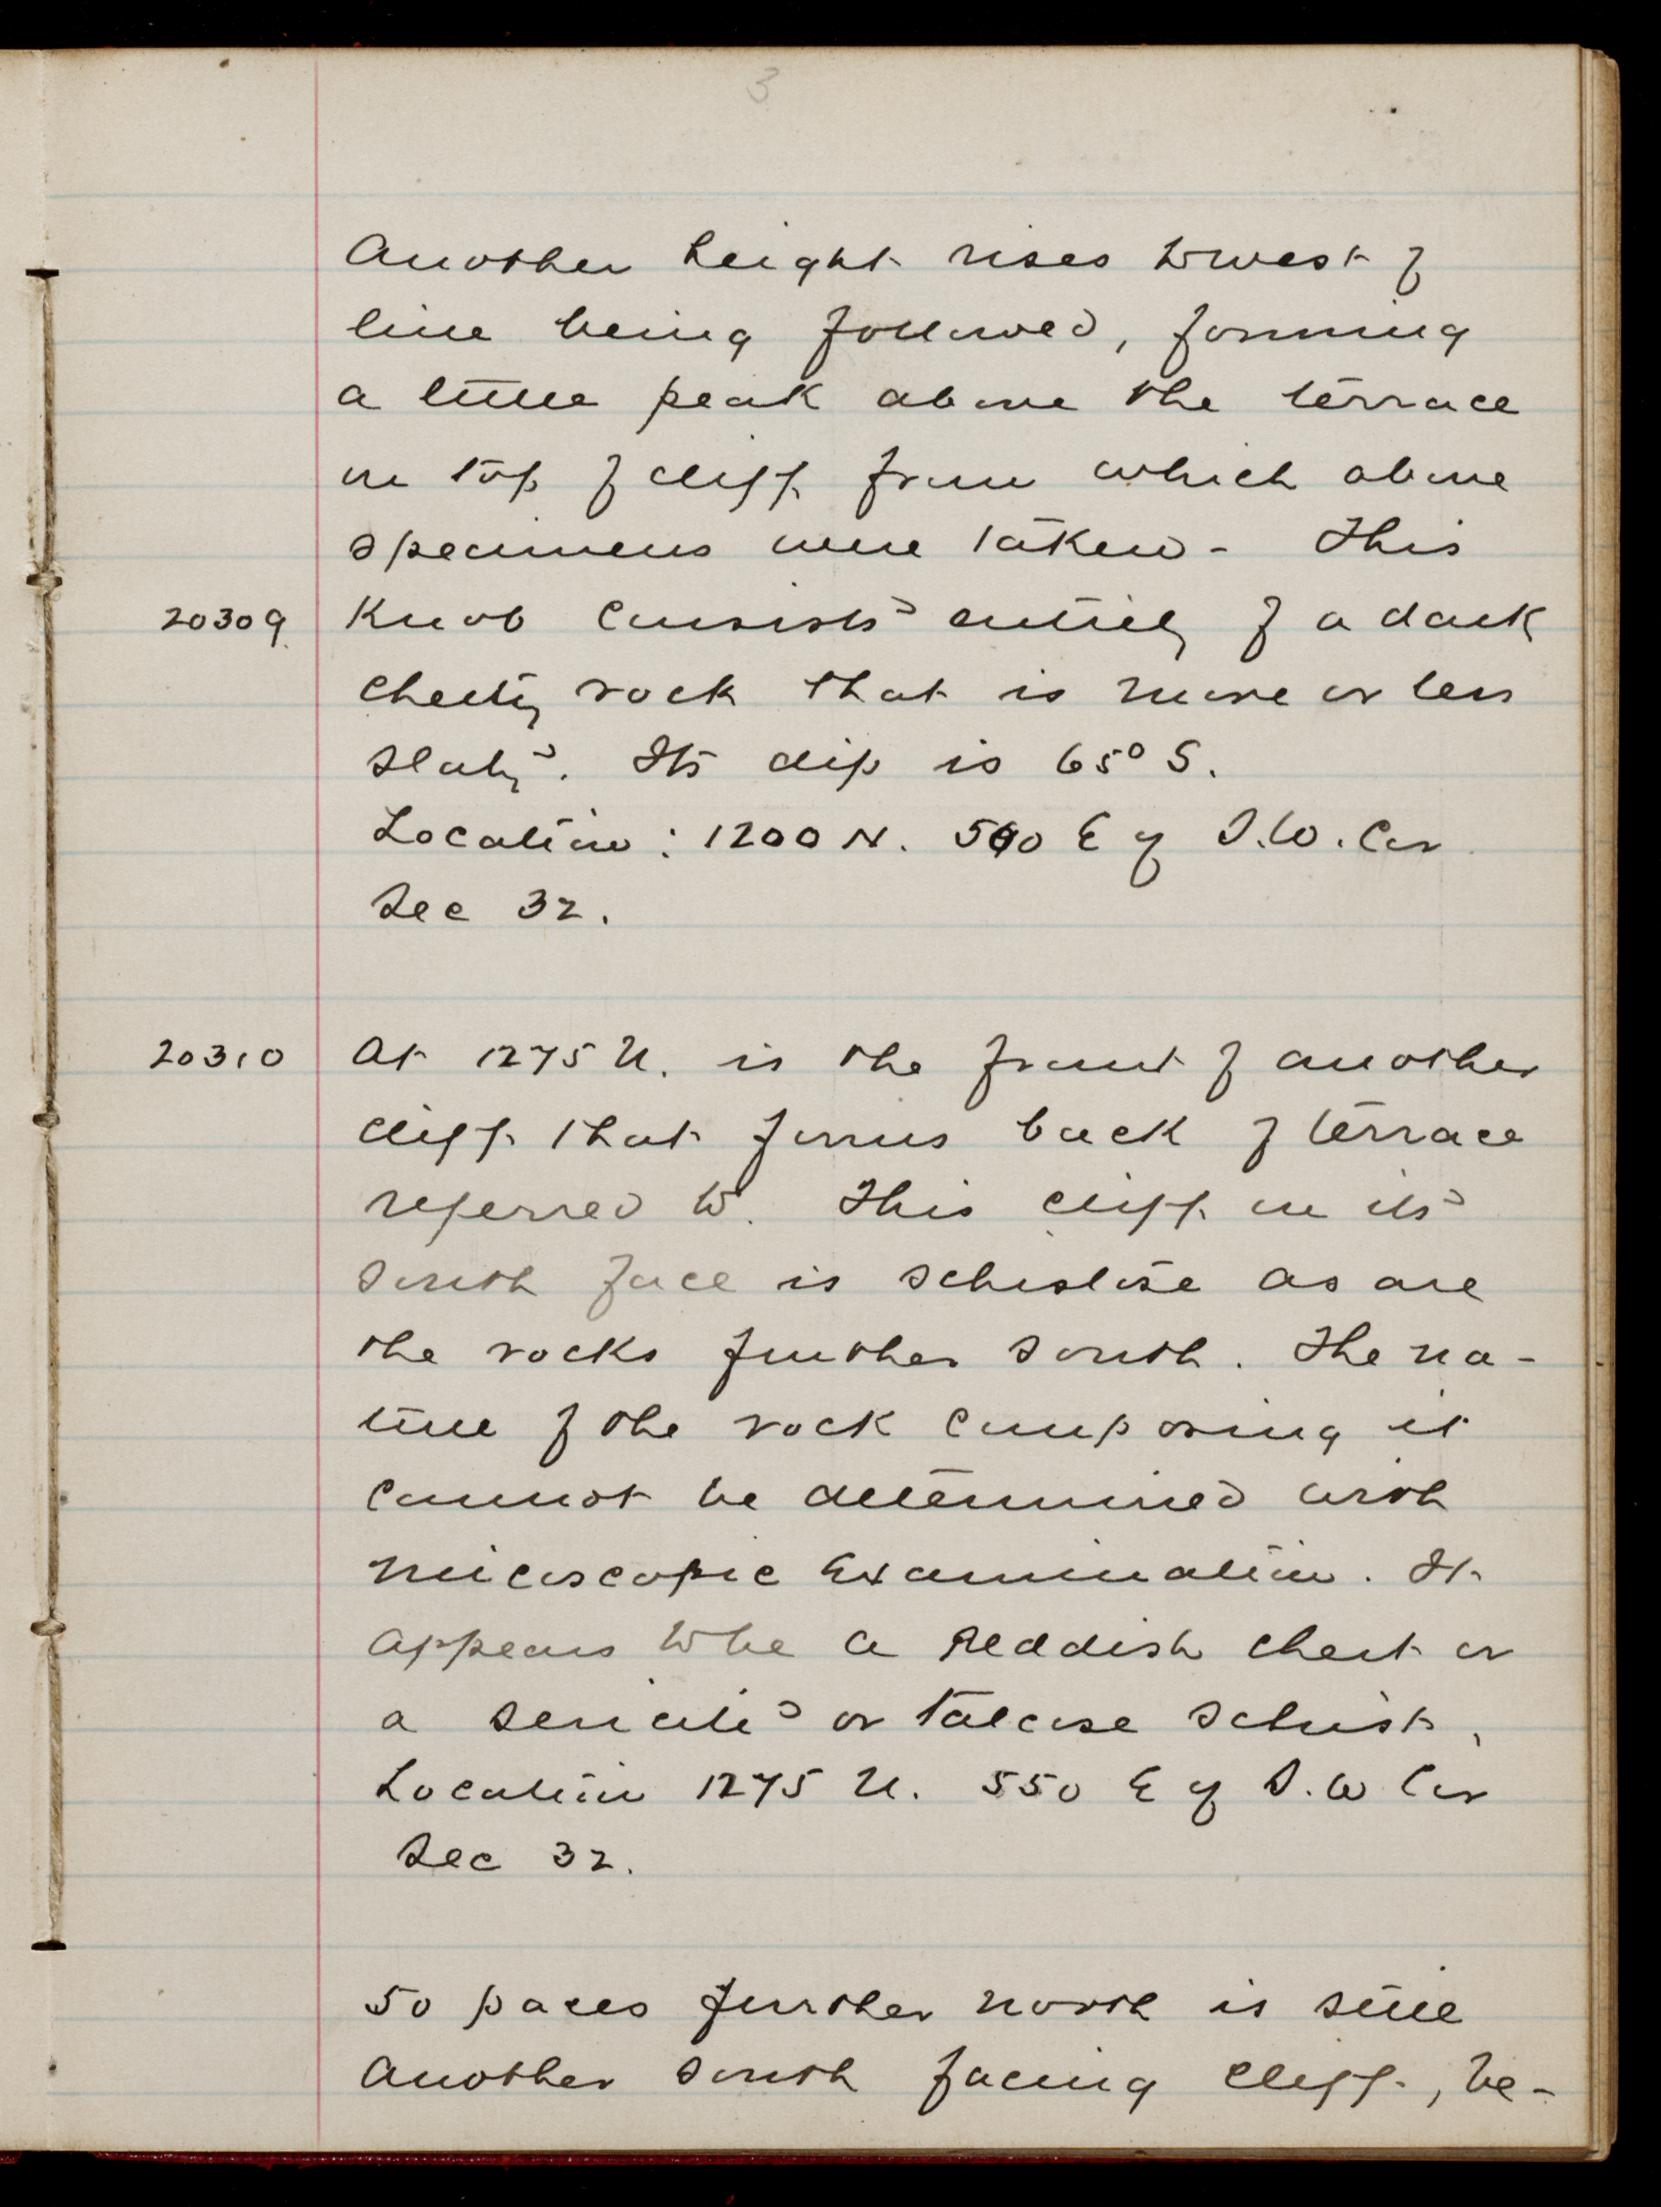 3
Another height rises to west of
line being followed, forming
a little peak above the terrace
on top of cliff from which above
specimens were taken - This
20309 Knob consists entirely of a dark
cherty rock that is more or less
slaty. Its dip is 65° S.
Location: 1200 N. 500 E of S.W. Cor
Sec 32.
20310 At 1275 N. is the front of another
cliff that forms back of terrace
referred to. This cliff on its
south face is schistose as are
the rocks further south. The na-
ture of the rock composing it
cannot be determined with
microscopic examination. It
appears to be a reddish chert or
a sericitic or talcose schist,
Location 1275 N. 550 E of S.W Cor
Sec 32.
50 paces further north is still
another south facing cliff, be-